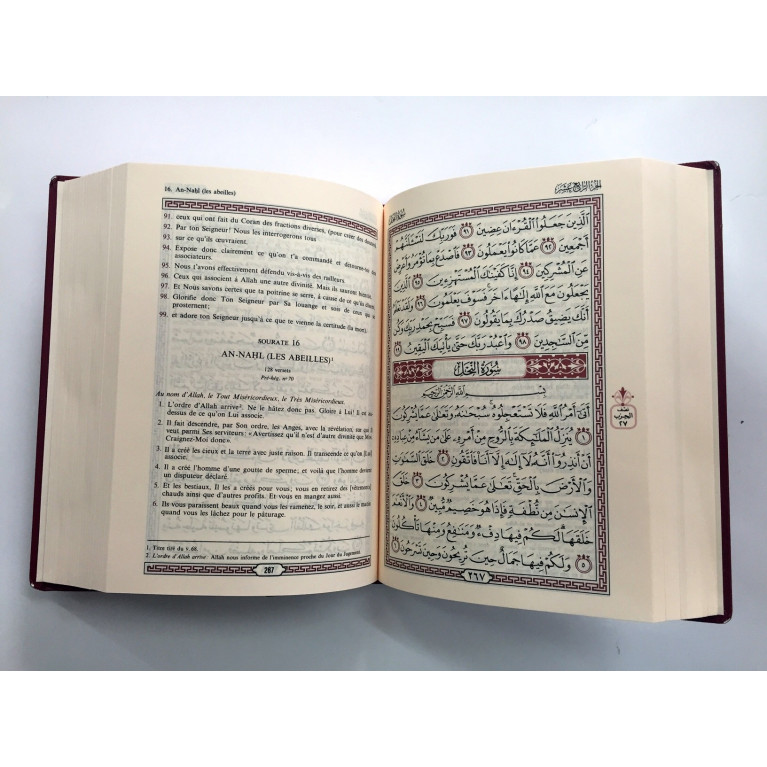 16. An-Nahl (les abeilles)
91. ceux qui ont fait du Coran des fractions diverses, (pour créer des
92. Par ton Seigneur! Nous les interrogerons tous
93. sur ce qu'ils œuvraient.
94. Expose donc clairement ce qu'on t'a commandé et détourne-toi des
associateurs.
95. Nous t'avons effectivement défendu vis-à-vis des railleurs.
96. Ceux qui associent à Allah une autre divinité. Mais ils sauront bientôt.
97. Et Nous savons certes que ta poitrine se serre, à cause de ce qu'ils disent.
98. Glorifie donc Ton Seigneur par Sa louange et sois de ceux qui se
prosternent;
99. et adore ton Seigneur jusqu'à ce que te vienne la certitude (la mort).
SOURATE 16
AN-NAḤL (LES ABEILLES)¹
128 versets
Pré-hég. n° 70
Au nom d'Allah, le Tout Miséricordieux, le Très Miséricordieux.
1. L'ordre d'Allah arrive². Ne le hâtez donc pas. Gloire à Lui! Il est au-
dessus de ce qu'on Lui associe.
2. Il fait descendre, par Son ordre, les Anges, avec la révélation, sur qui Il
veut parmi Ses serviteurs: «Avertissez qu'il n'est d'autre divinité que Moi.
Craignez-Moi donc».
3. Il a créé les cieux et la terre avec juste raison. Il transcende ce qu'on [Lui]
associe.
4. Il a créé l'homme d'une goutte de sperme; et voilà que l'homme devient
un disputeur déclaré.
5. Et les bestiaux, Il les a créés pour vous; vous en retirez des [vêtements]
chauds ainsi que d'autres profits. Et vous en mangez aussi.
6. Ils vous paraissent beaux quand vous les ramenez, le soir, et aussi le matin
quand vous les lâchez pour le pâturage.
1. Titre tiré du v. 68.
2. L'ordre d'Allah arrive: Allah nous informe de l'imminence proche du Jour du Jugement.
267
الجزء الرابع عشر
الَّذِينَ جَعَلُوا الْقُرْءَانَ عِضِينَ ٩١ فَوَرَبِّكَ لَنَسْـَٔلَنَّهُمْ
أَجْمَعِينَ ٩٢ عَمَّا كَانُوا يَعْمَلُونَ ٩٣ فَاصْدَعْ بِمَا تُؤْمَرُ وَأَعْرِضْ
عَنِ الْمُشْرِكِينَ ٩٤ إِنَّا كَفَيْنَٰكَ الْمُسْتَهْزِءِينَ ٩٥ الَّذِينَ
يَجْعَلُونَ مَعَ اللَّهِ إِلَٰهًا ءَاخَرَ فَسَوْفَ يَعْلَمُونَ ٩٦ وَلَقَدْ نَعْلَمُ
أَنَّكَ يَضِيقُ صَدْرُكَ بِمَا يَقُولُونَ ٩٧ فَسَبِّحْ بِحَمْدِ رَبِّكَ وَكُن
مِّنَ السَّٰجِدِينَ ٩٨ وَاعْبُدْ رَبَّكَ حَتَّىٰ يَأْتِيَكَ الْيَقِينُ ٩٩
سُورَةُ النَّحْلِ
بِسْمِ اللَّهِ الرَّحْمَٰنِ الرَّحِيمِ
أَتَىٰ أَمْرُ اللَّهِ فَلَا تَسْتَعْجِلُوهُ سُبْحَٰنَهُ وَتَعَٰلَىٰ عَمَّا يُشْرِكُونَ
١ يُنَزِّلُ الْمَلَٰئِكَةَ بِالرُّوحِ مِنْ أَمْرِهِ عَلَىٰ مَن يَشَاءُ مِنْ عِبَادِهِ
أَنْ أَنذِرُوا أَنَّهُ لَا إِلَٰهَ إِلَّا أَنَا فَاتَّقُونِ ٢ خَلَقَ السَّمَٰوَٰتِ
وَالْأَرْضَ بِالْحَقِّ تَعَٰلَىٰ عَمَّا يُشْرِكُونَ ٣ خَلَقَ
الْإِنسَٰنَ مِن نُّطْفَةٍ فَإِذَا هُوَ خَصِيمٌ مُّبِينٌ ٤ وَالْأَنْعَٰمَ
خَلَقَهَا لَكُمْ فِيهَا دِفْءٌ وَمَنَٰفِعُ وَمِنْهَا تَأْكُلُونَ
٥ وَلَكُمْ فِيهَا جَمَالٌ حِينَ تُرِيحُونَ وَحِينَ تَسْرَحُونَ ٦
نصف
الحزب
٢٧
٢٦٧